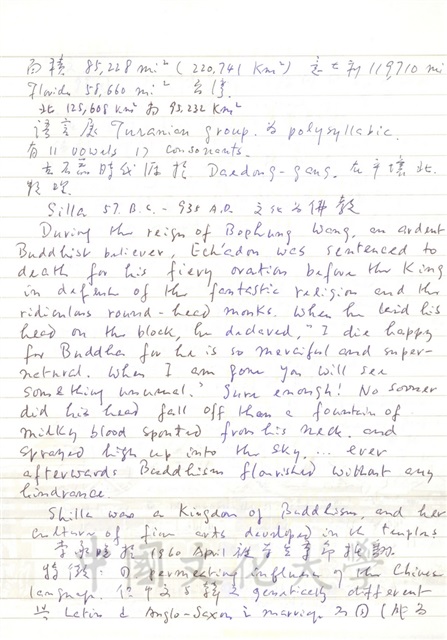 面積 85,228 mi² (220,741 Km²) 意大利 119710 mi
Florida 58,660 mi²
北 125,608 km² 南 95,232 Km²
語言屬 Turanian group. 為 polysyllabic.
有 11 vowels 17 consonants.
在石器時代 Daedong-gang. 在平壤北
Silla 57. B.C. - 935 A.D. 文化為佛教
During the reign of Bophung Wang, an ardent
Buddhist believer, Echadon was sentenced to
death for his fiery oration before the King
in defence of the fantastic religion and the
ridiculous round-head monks. When he laid his
head on the block, he declared, "I die happy
for Buddha for he is so merciful and super-
natural. When I am gone you will see
something unusual." Sure enough! No sooner
did his head fall off than a fountain of
milky blood spouted from his neck. and
sprayed high up into the sky.... ever
afterwards Buddhism flourished without any
hindrance.
Shilla was a Kingdom of Buddhism, and her
culture of fine arts developed in the temples
李承晚於 1960 April
① permeating influence of the Chinese
language. genetically different
Latin & Anglo-Saxon is marriage
中國文化大學